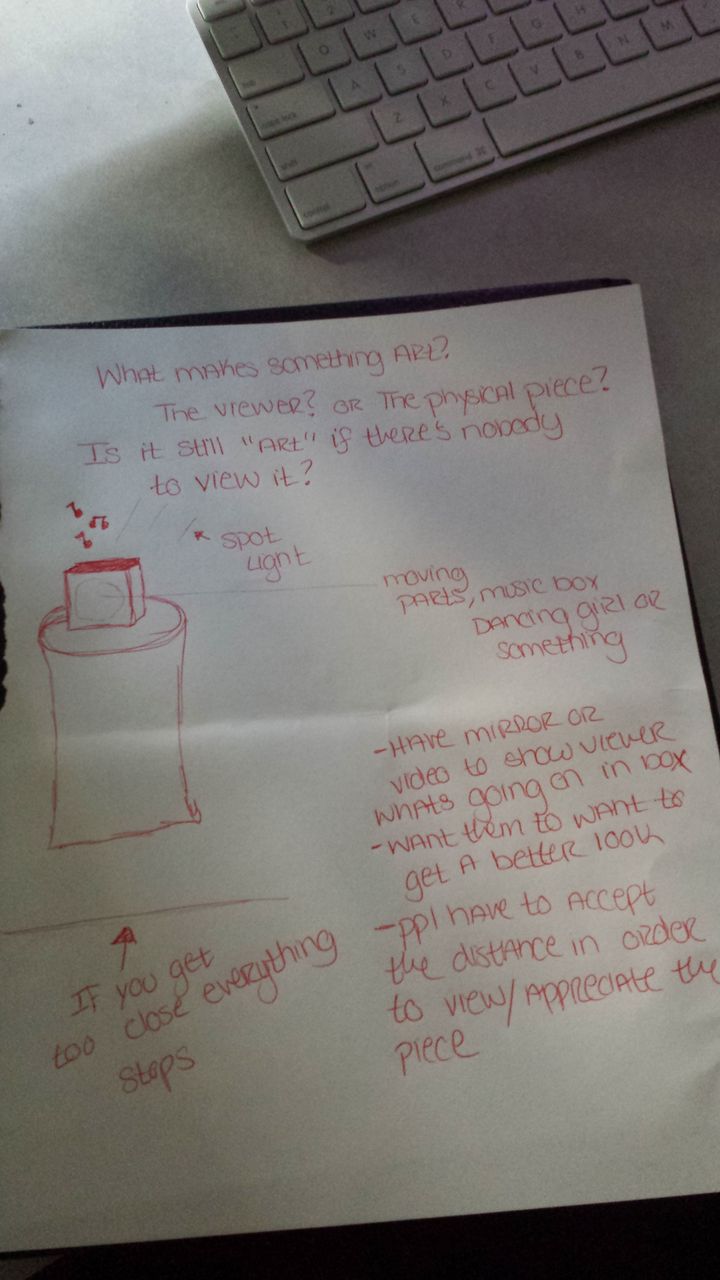 Q W E R
A S D F G H
Z X C V B N M
caps lock
shift
control
option
command ⌘
What makes something ART?
The viewer? or The physical piece?
Is it still "ART" if there's nobody
to view it?
spot
light
moving
parts, music box
Dancing girl or
something
-Have mirror or
video to show viewer
whats going on in box
-want them to want to
get a better look
-ppl have to accept
the distance in order
to view/appreciate the
piece
If you get
too close everything
stops